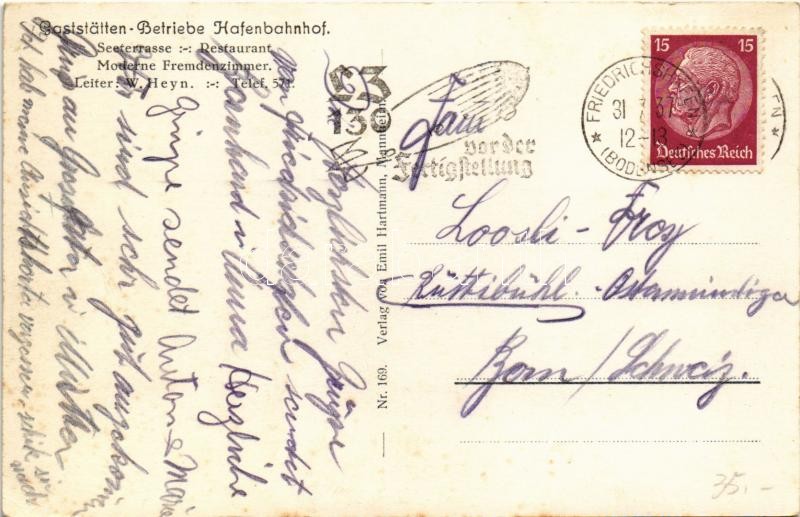 Gaststätten-Betriebe Hafenbahnhof.
Seeterrasse :-: Restaurant.
Moderne Fremdenzimmer.
Leiter: W. Heyn. :-: Telef. 571.
LZ
130
vor der
Fertigstellung
FRIEDRICHSHAFEN
31
37
12-13
(BODENSEE)
15 15
Deutsches Reich
Nr. 169. Verlag von Emil Hartmann, Mannheim.
Fam
Loosli-Frey
Rüttibühl-Ostermundigen
Bern / Schweiz.
Herzlichsten Grüsse
von Friedrichshafen sendet
Bernhard u Anna Herzliche
Grüsse sendet Anton & Marie
Wir sind sehr gut angekommen
Gruss an Grossvater u Mutter
Ich hab meine Ansichtskarte vergessen
35.-